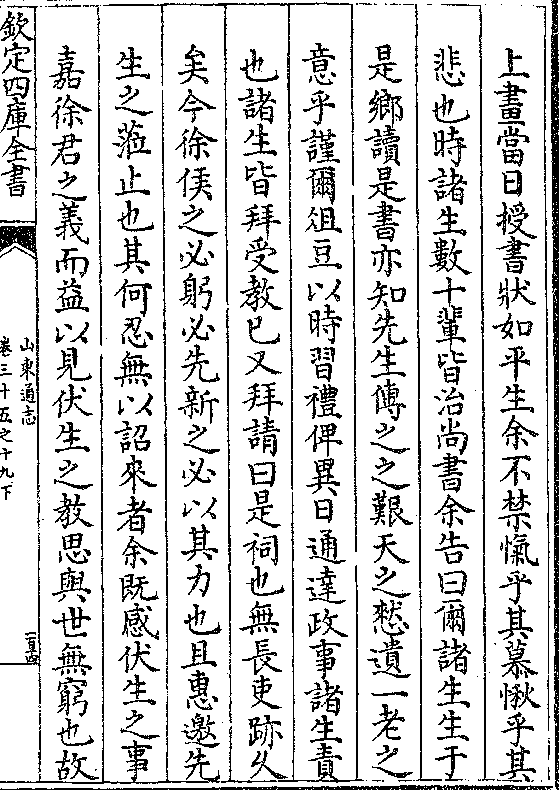 上畫當日授書狀如平生余不禁愾乎其慕愀乎其
悲也時諸生數十輩皆治尚書余告曰爾諸生生于
是鄉讀是書亦知先生傳之之艱天之憗遺一老之
意乎謹爾俎豆以時習禮俾異日通達政事諸生責
也諸生皆拜受教已又拜請曰是祠也無長吏跡久
矣今徐侯之必躬必先新之必以其力也且惠邀先
生之蒞止也其何忍無以詔來者余既感伏生之事
嘉徐君之義而益以見伏生之教思與世無窮也故
欽定四庫全書
山東通志
卷三十五之十九下